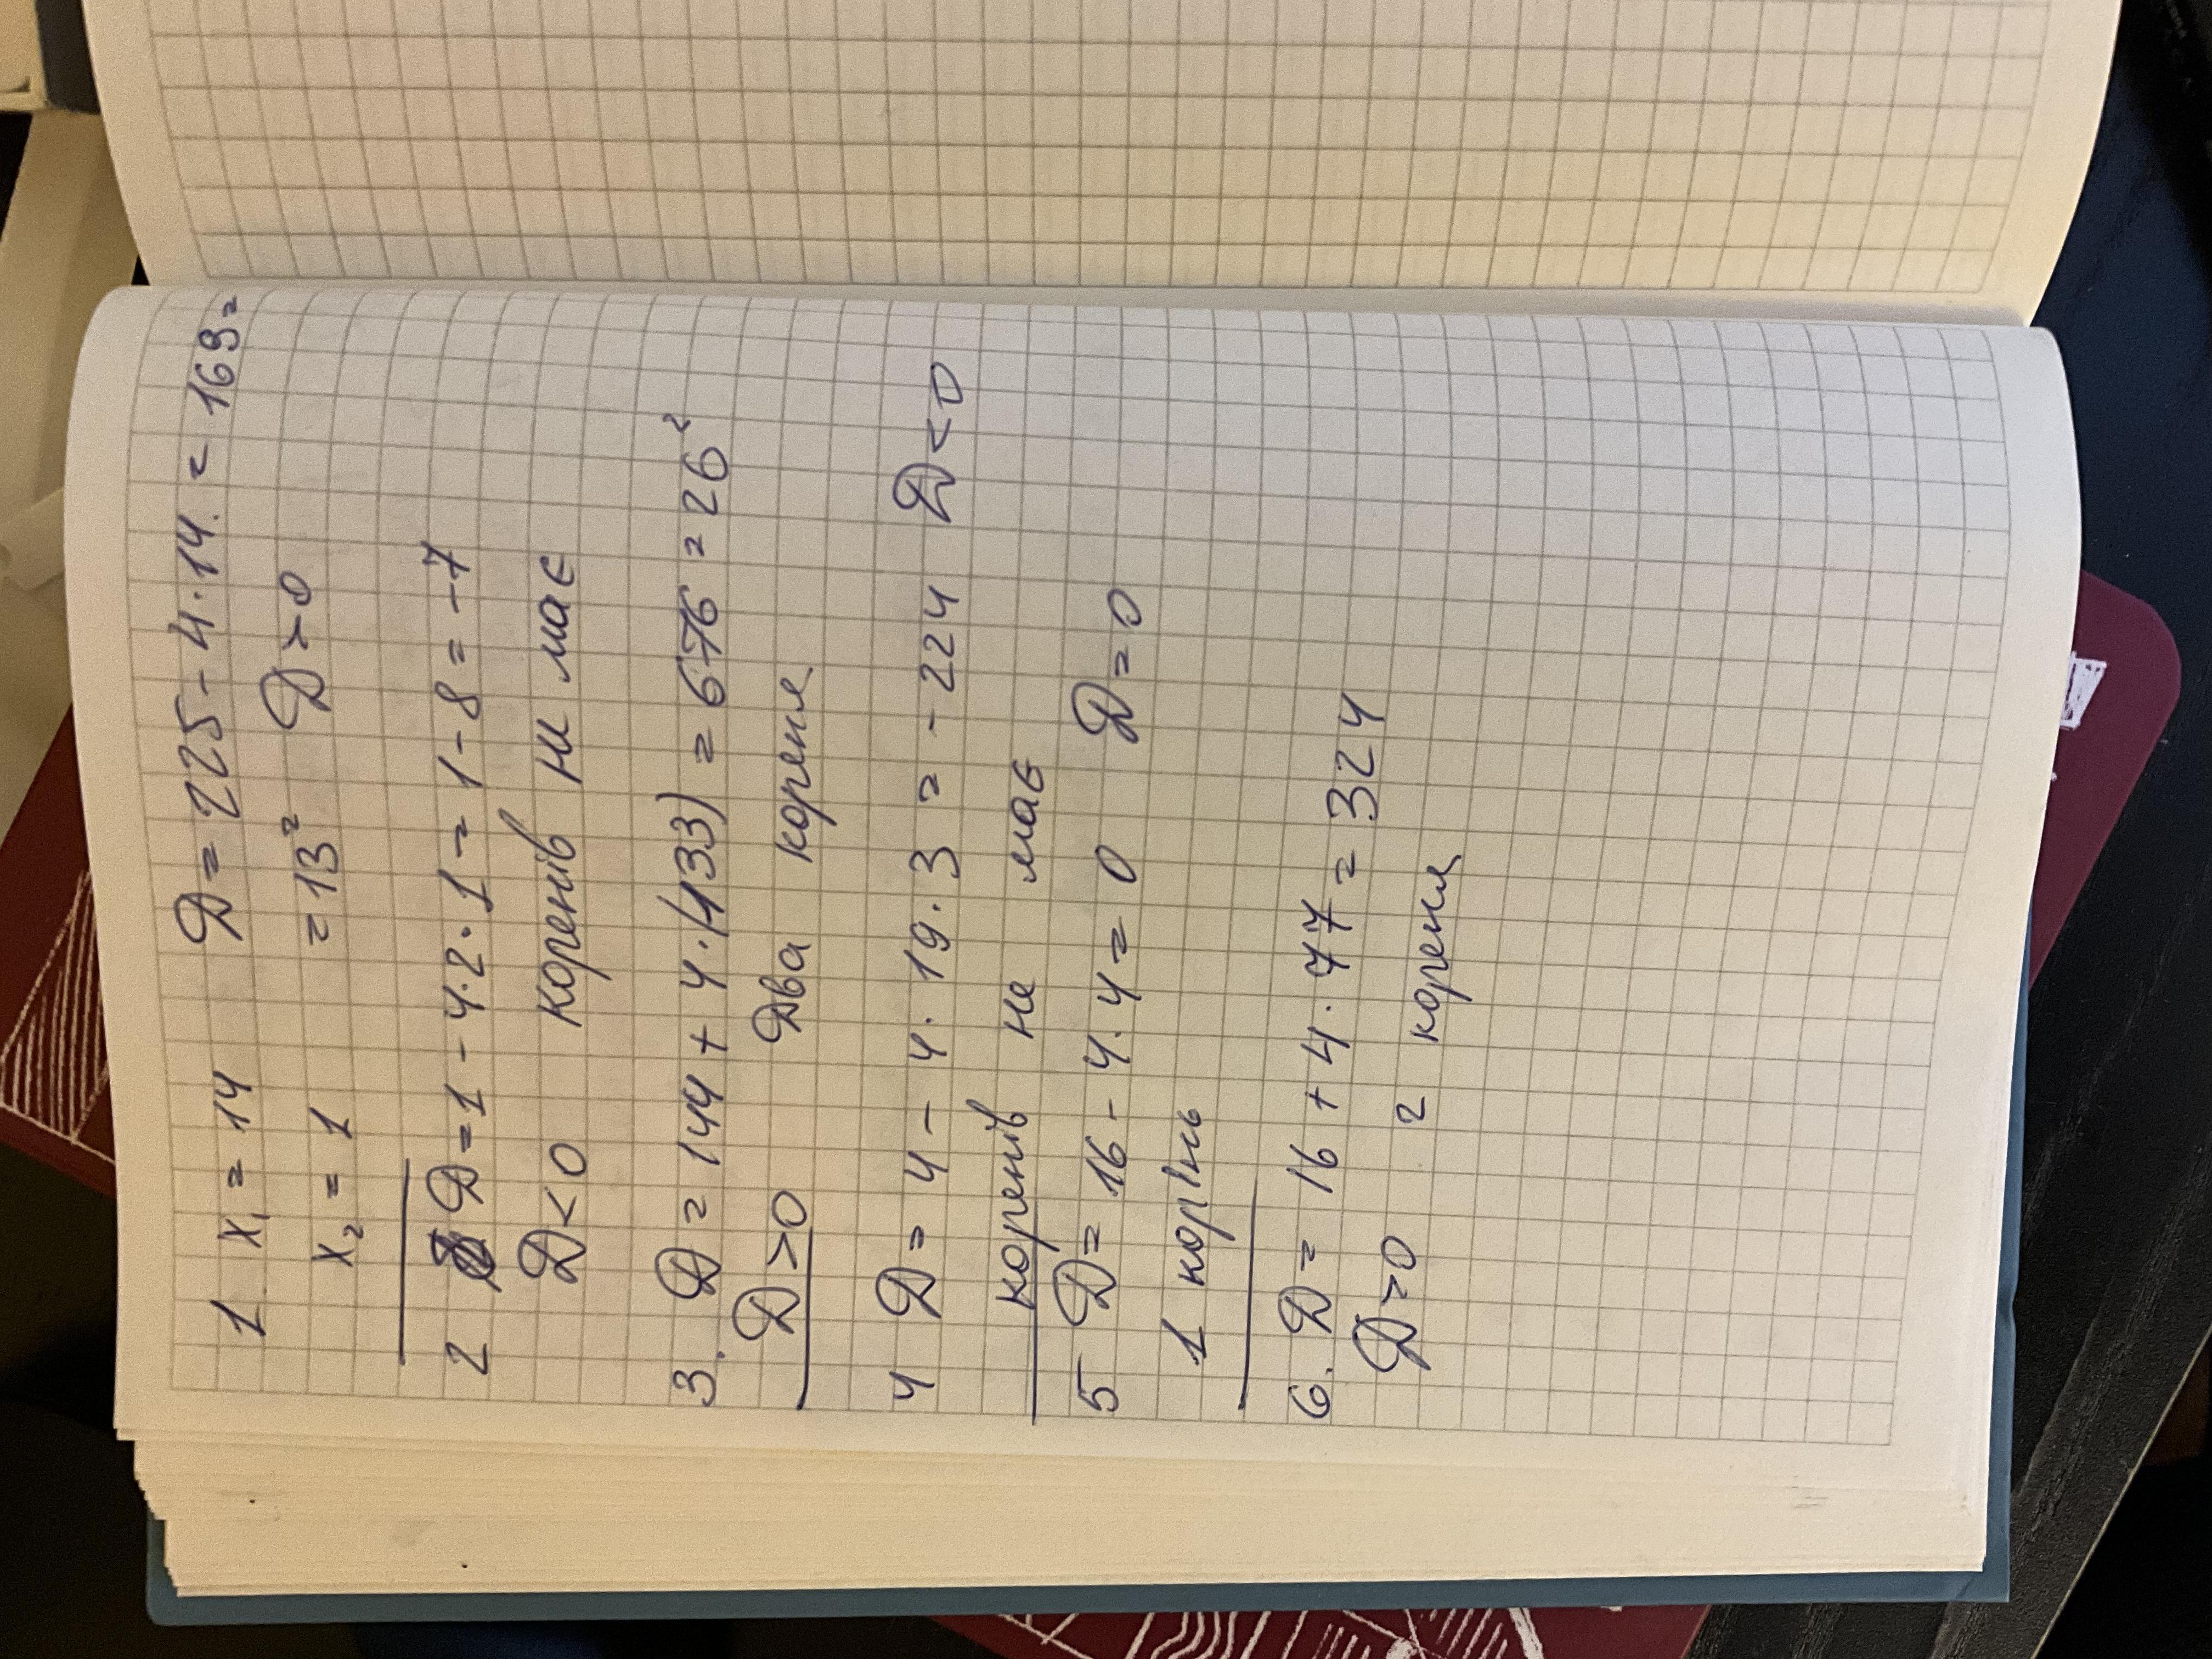 1. x₁ = 14 D = 225 - 4·14. = 169 =
x₂ = 1 = 13² D > 0
2 D = 1 - 4·2·1 = 1 - 8 = -7
D < 0 коренів не має
3. D = 144 + 4·(133) = 676 = 26²
D > 0 Два кореня
4 D = 4 - 4·19·3 = -224 D < 0
коренів не має
5 D = 16 - 4·4 = 0 D = 0
1 корінь
6. D = 16 + 4·77 = 324
D > 0 2 кореня